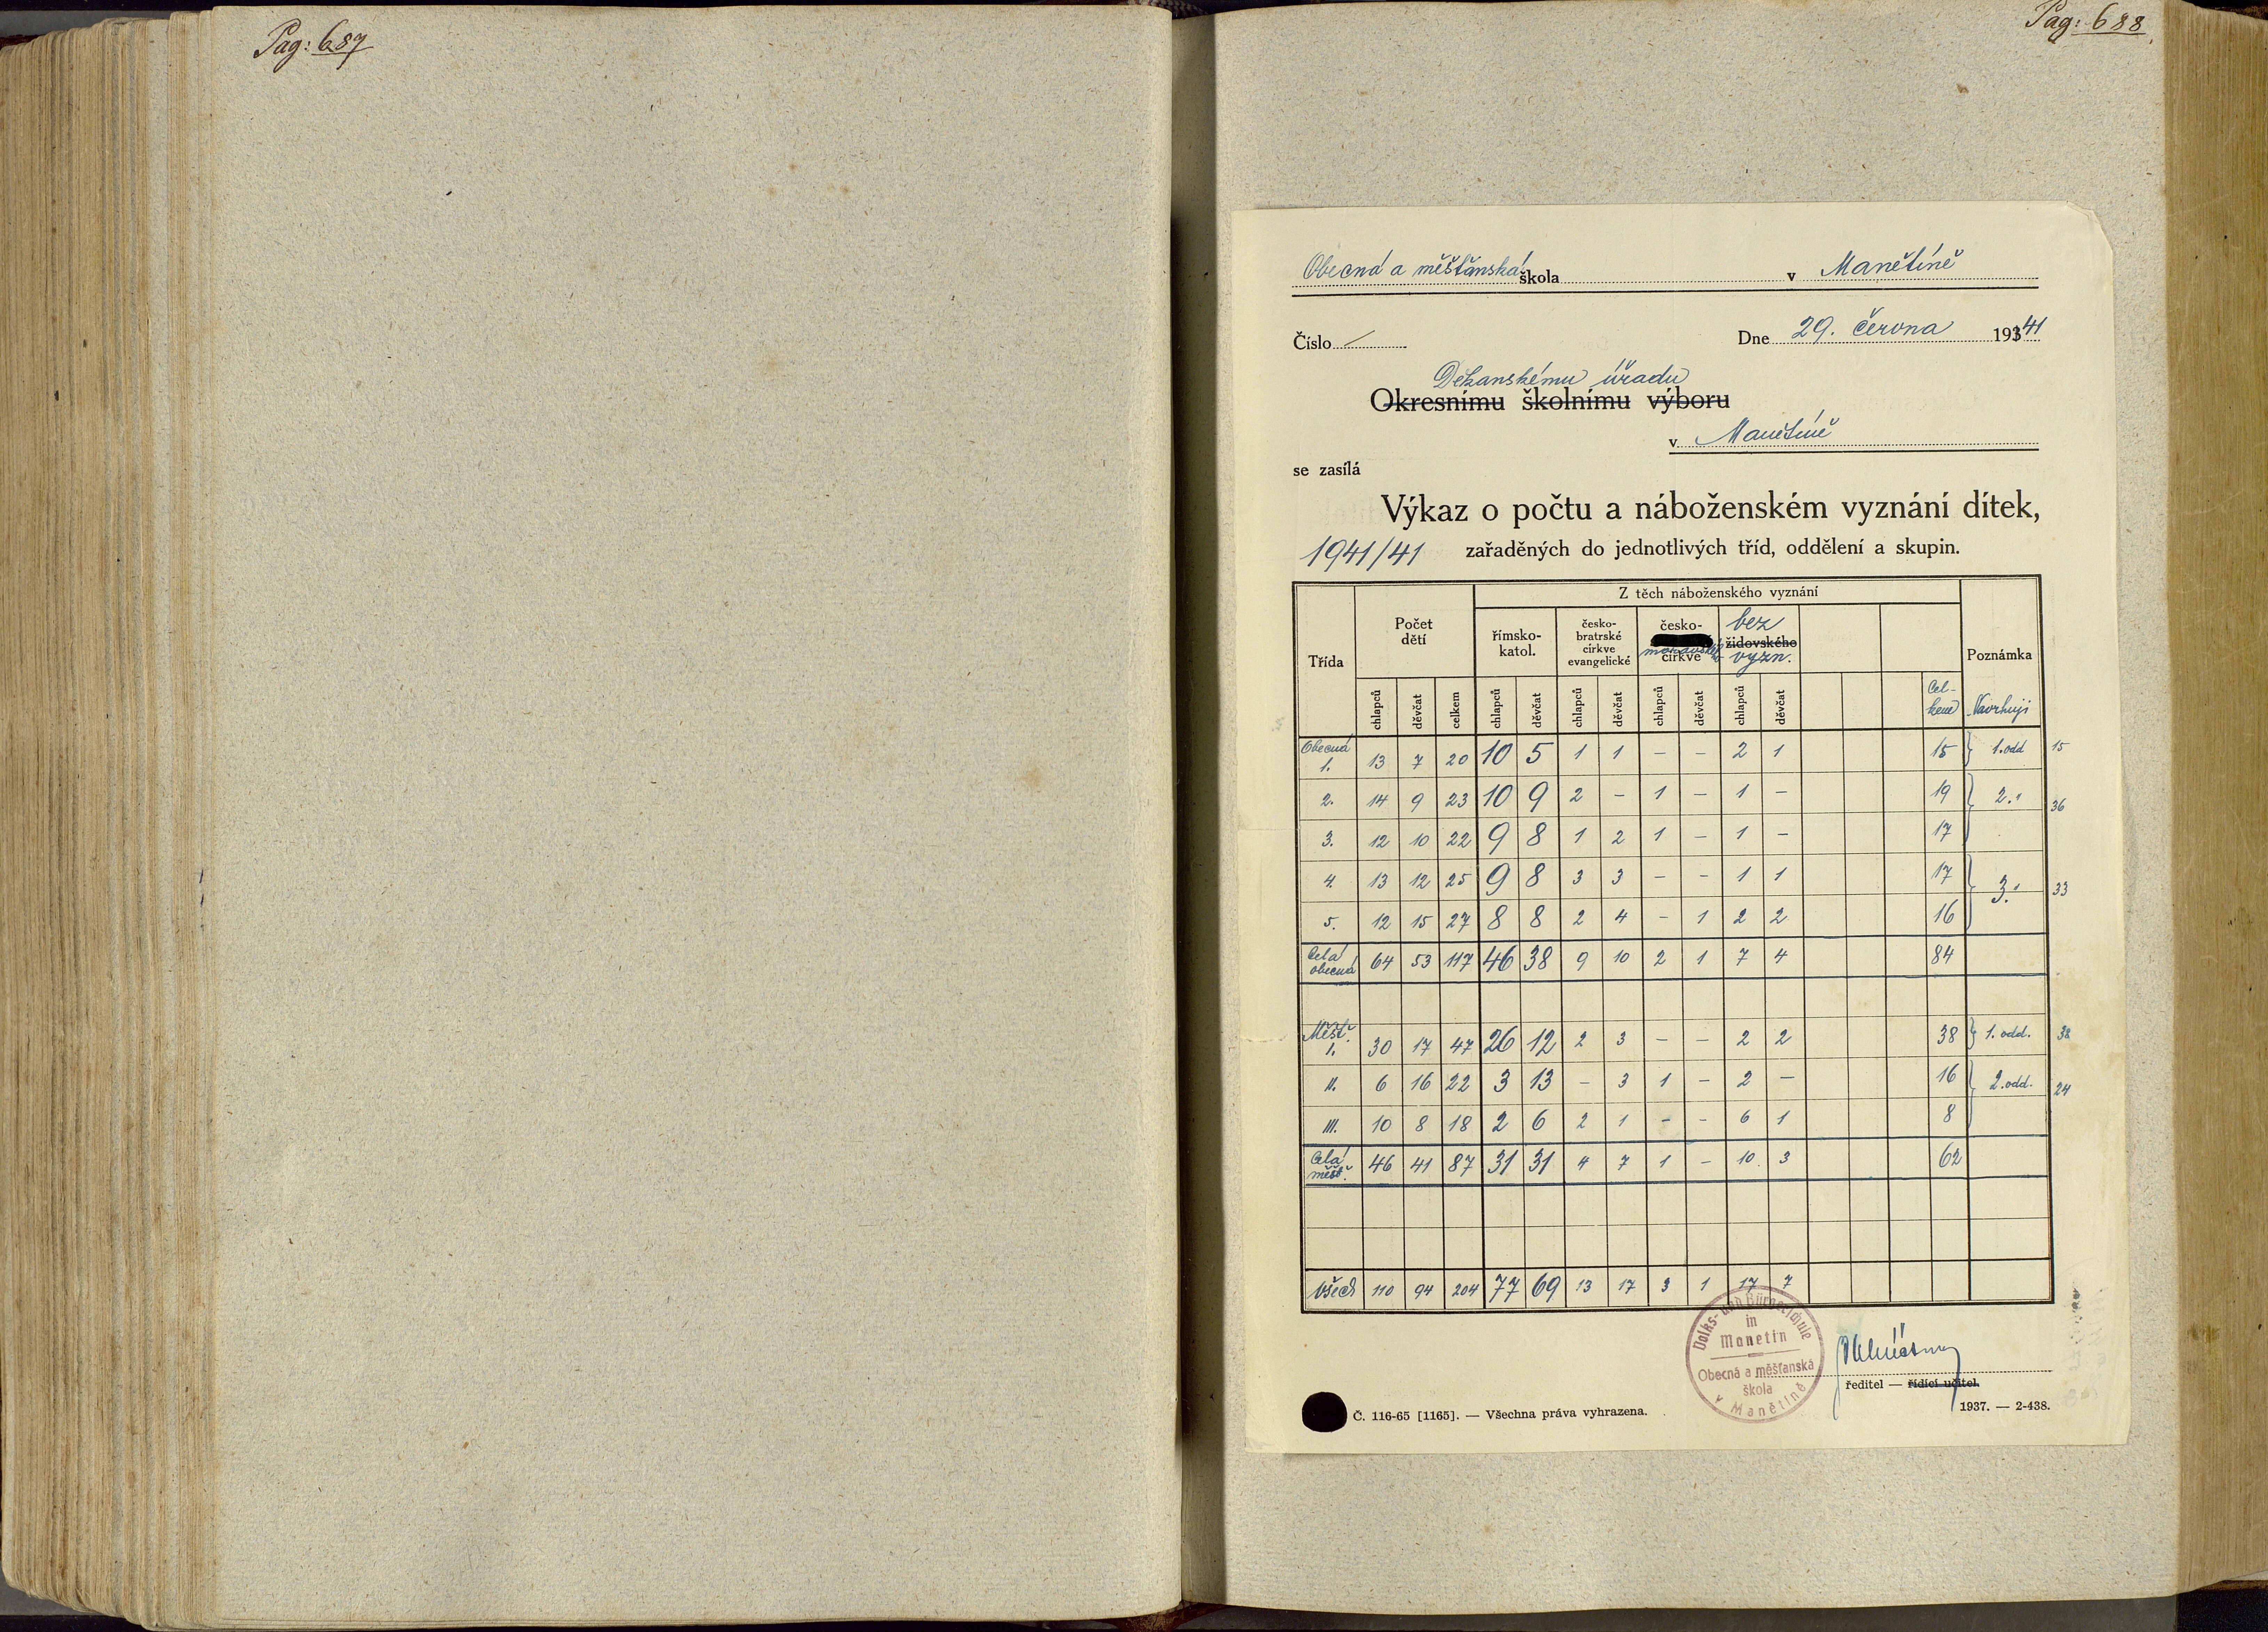 Pag: 687
Pag: 688
Obecná a měšťanská škola v Manětíně
Číslo / Dne 29. června 19341
Děkanskému úřadu
Okresnímu školnímu výboru
v Manětíně
se zasílá
Výkaz o počtu a náboženském vyznání dítek,
1941/41 zařaděných do jednotlivých tříd, oddělení a skupin.
Třída Počet dětí Z těch náboženského vyznání Poznámka
římsko-katol. česko-bratrské církve evangelické česko-moravské církve židovského bez vyzn.
chlapců děvčat celkem chlapců děvčat chlapců děvčat chlapců děvčat chlapců děvčat Cel-kem Navrhuji
Obecná 1. 13 7 20 10 5 1 1 – – 2 1 15 } 1. odd 15
2. 14 9 23 10 9 2 – 1 – 1 – 19 } 2. " 36
3. 12 10 22 9 8 1 2 1 – 1 – 17
4. 13 12 25 9 8 3 3 – – 1 1 17 } 3. " 33
5. 12 15 27 8 8 2 4 – 1 2 2 16
Celá obecná 64 53 117 46 38 9 10 2 1 7 4 84
Měšť. I. 30 17 47 26 12 2 3 – – 2 2 38 } 1. odd. 38
II. 6 16 22 3 13 – 3 1 – 2 – 16 } 2. odd. 24
III. 10 8 18 2 6 2 1 – – 6 1 8
Celá měšť. 46 41 87 31 31 4 7 1 – 10 3 62
Všech 110 94 204 77 69 13 17 3 1 17 7
Volks- und Bürgerschule
in
Manetin
Obecná a měšťanská
škola
v Manětíně
ředitel — řídící učitel.
Č. 116-65 [1165]. — Všechna práva vyhrazena. 1937. — 2-438.